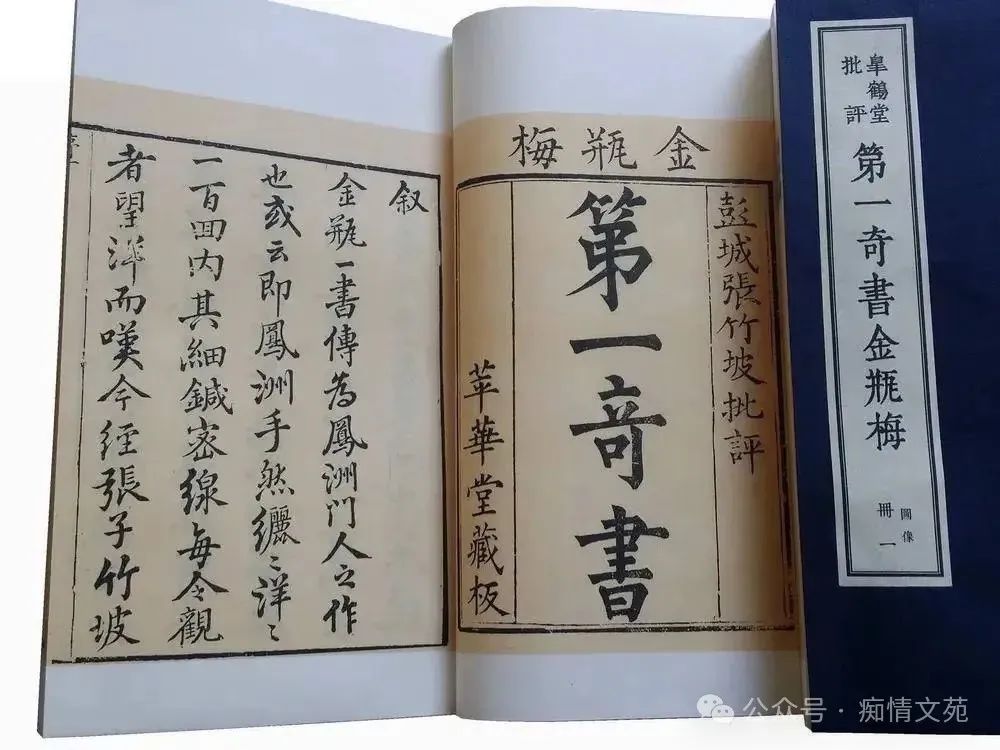 皐鶴堂
批評
第一奇書金瓶梅
圖像
冊一
金瓶梅
彭城張竹坡批評
第一奇書
苹華堂藏板
叙
金瓶一書傳為鳳洲門人之作
也或云即鳳洲手然纚〻洋〻
一百回内其細鍼密線每令觀
者望洋而嘆今經張子竹坡
公众号·痴情文苑